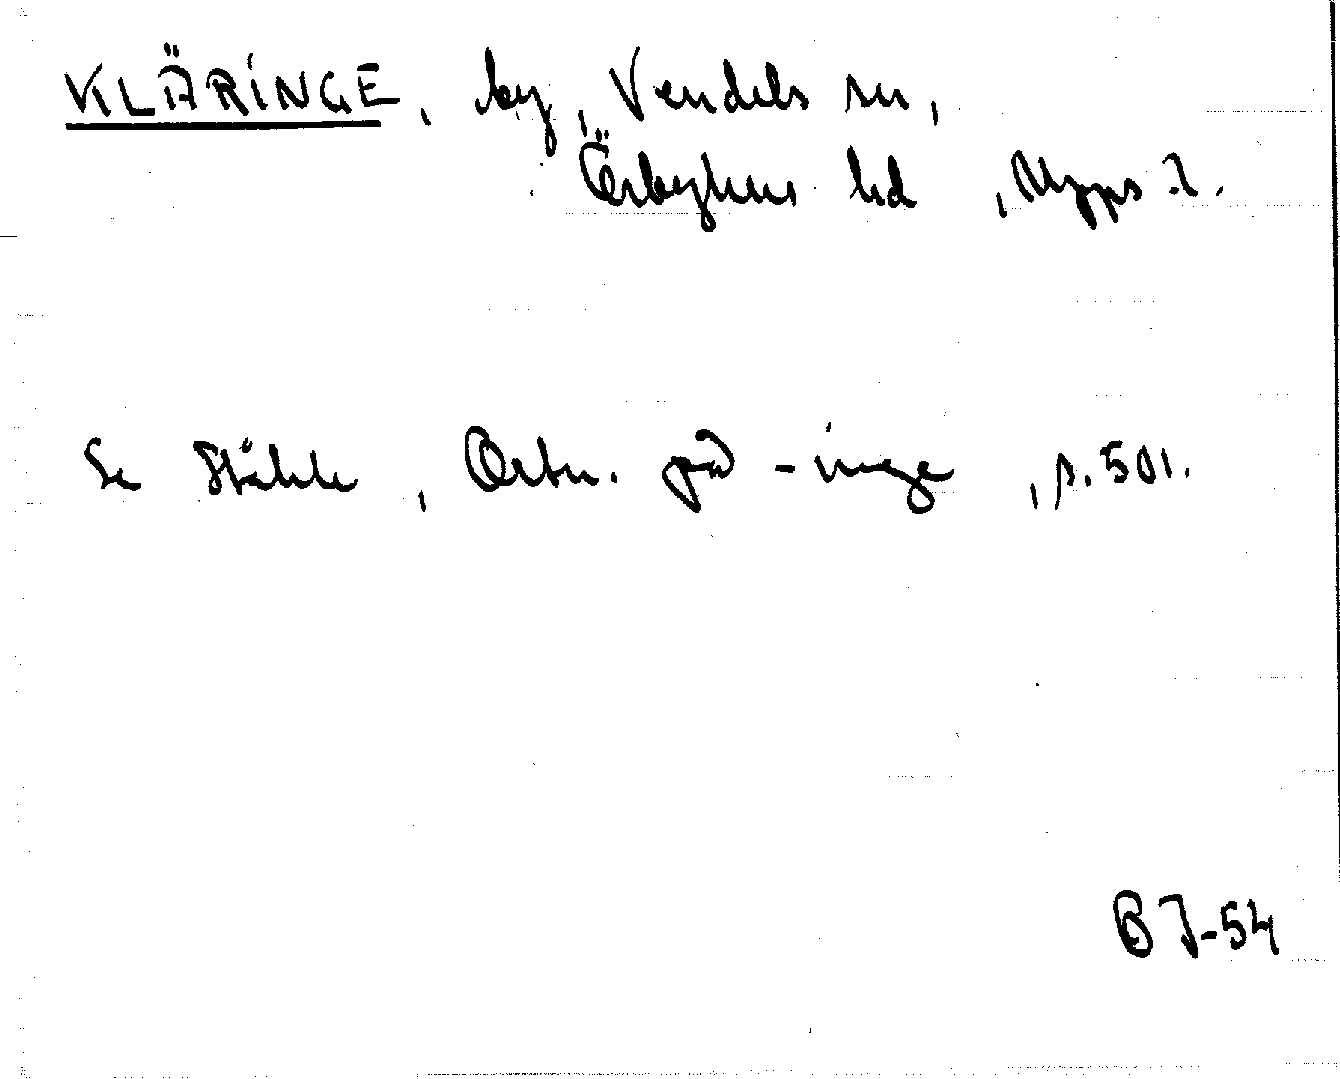 KLÄRINGE, by, Vendels sn,
Örbyhus hd, Upps. l.
Se Ståhle, Ortn. på -inge, s. 501.
B J-54